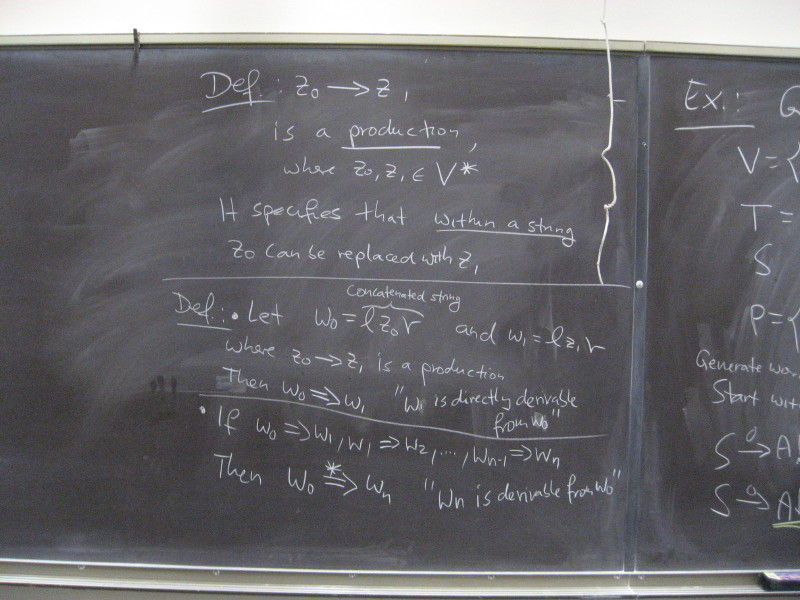 Def.: z₀ → z₁
is a production,
where z₀, z₁ ∈ V*
It specifies that within a string
z₀ can be replaced with z₁
Concatenated string
Def.: • Let w₀ = l z₀ r and w₁ = l z₁ r
where z₀ → z₁ is a production
Then w₀ ⇒ w₁ "w₁ is directly derivable
from w₀"
• If w₀ ⇒ w₁, w₁ ⇒ w₂, ...., wₙ₋₁ ⇒ wₙ
Then w₀ *⇒ wₙ "wₙ is derivable from w₀"
Ex.: G
V = {
T =
S
P = {
Generate
Start
S → A
S → A